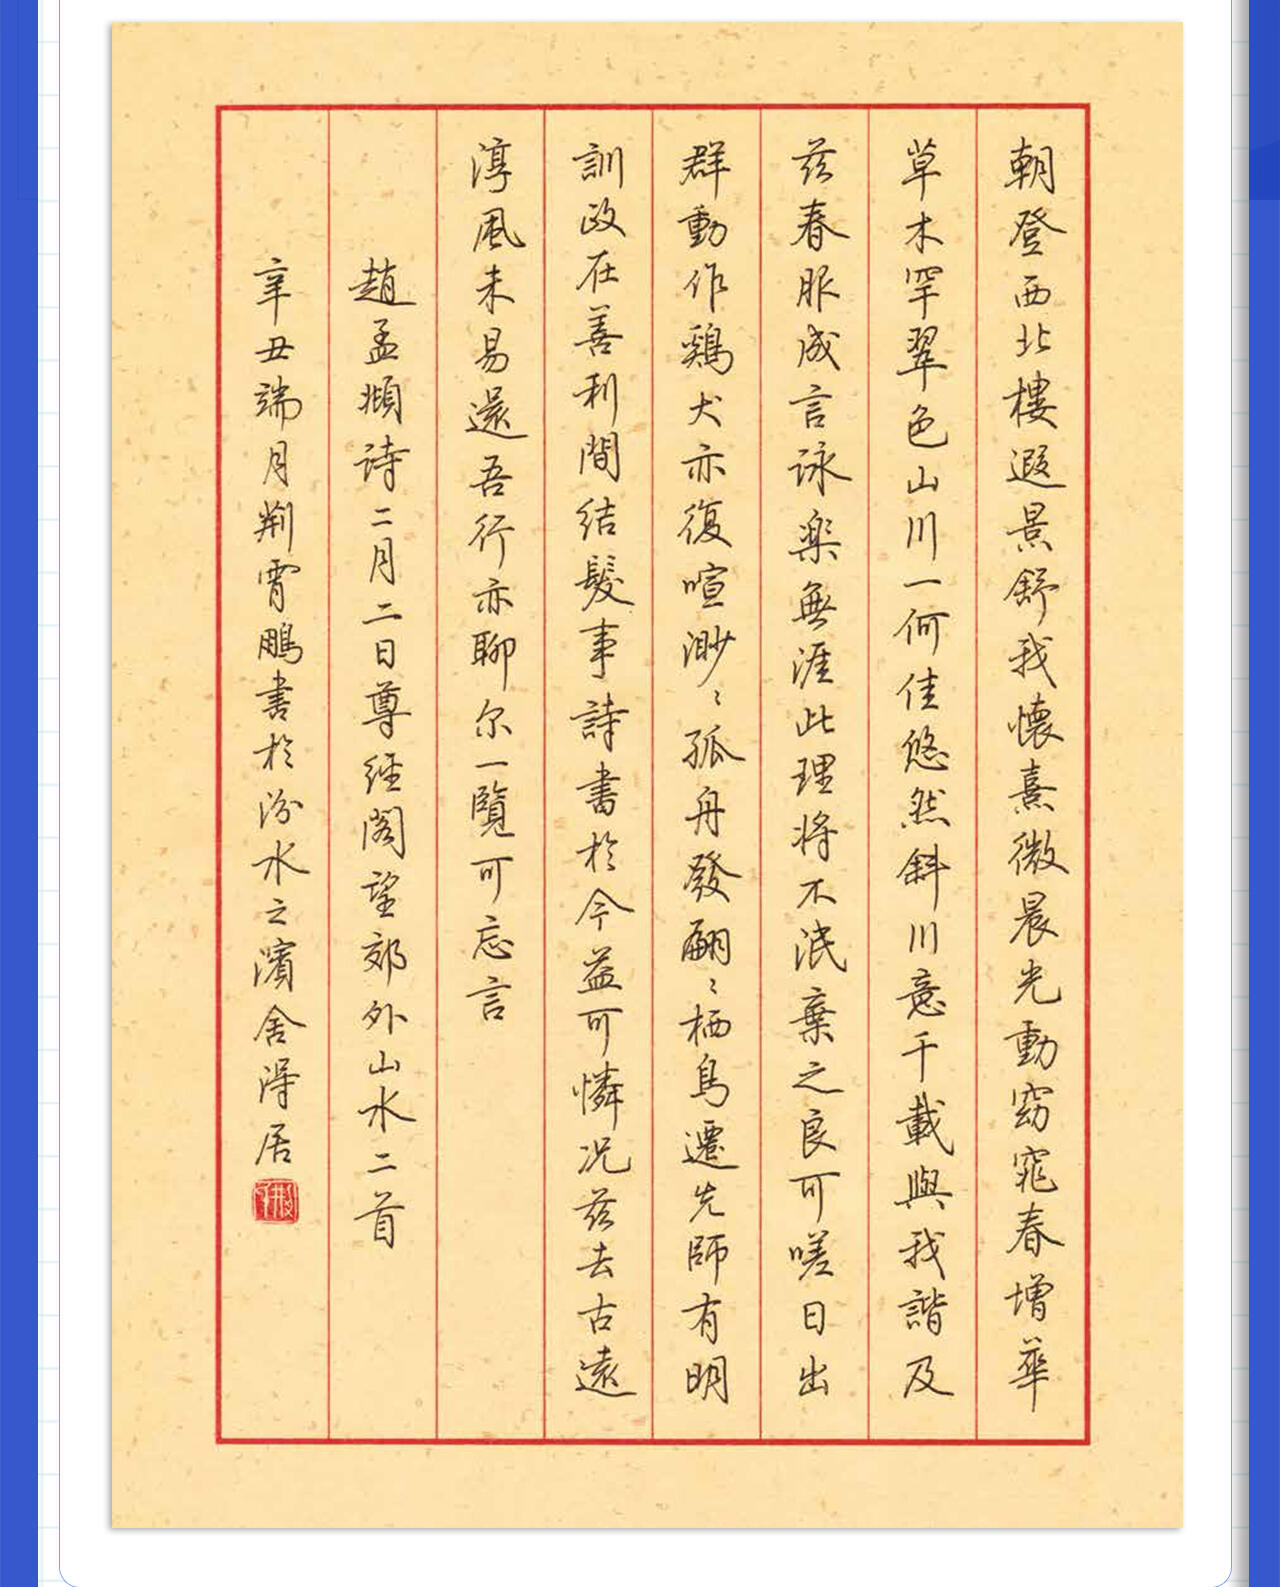 朝登西北樓遐景舒我懷熹微晨光動窈窕春增華
草木罕翠色山川一何佳悠然斜川意千載與我諧及
茲春服成言詠樂無涯此理將不泯棄之良可嗟日出
群動作鷄犬亦復喧渺〻孤舟發翩〻栖鳥遷先師有明
訓政在善利間結髮事詩書於今益可憐况茲去古遠
淳風未易還吾行亦聊尔一覽可忘言
趙孟頫詩二月二日尊經閣望郊外山水二首
辛丑端月荆霄鵬書於汾水之濱舍得居